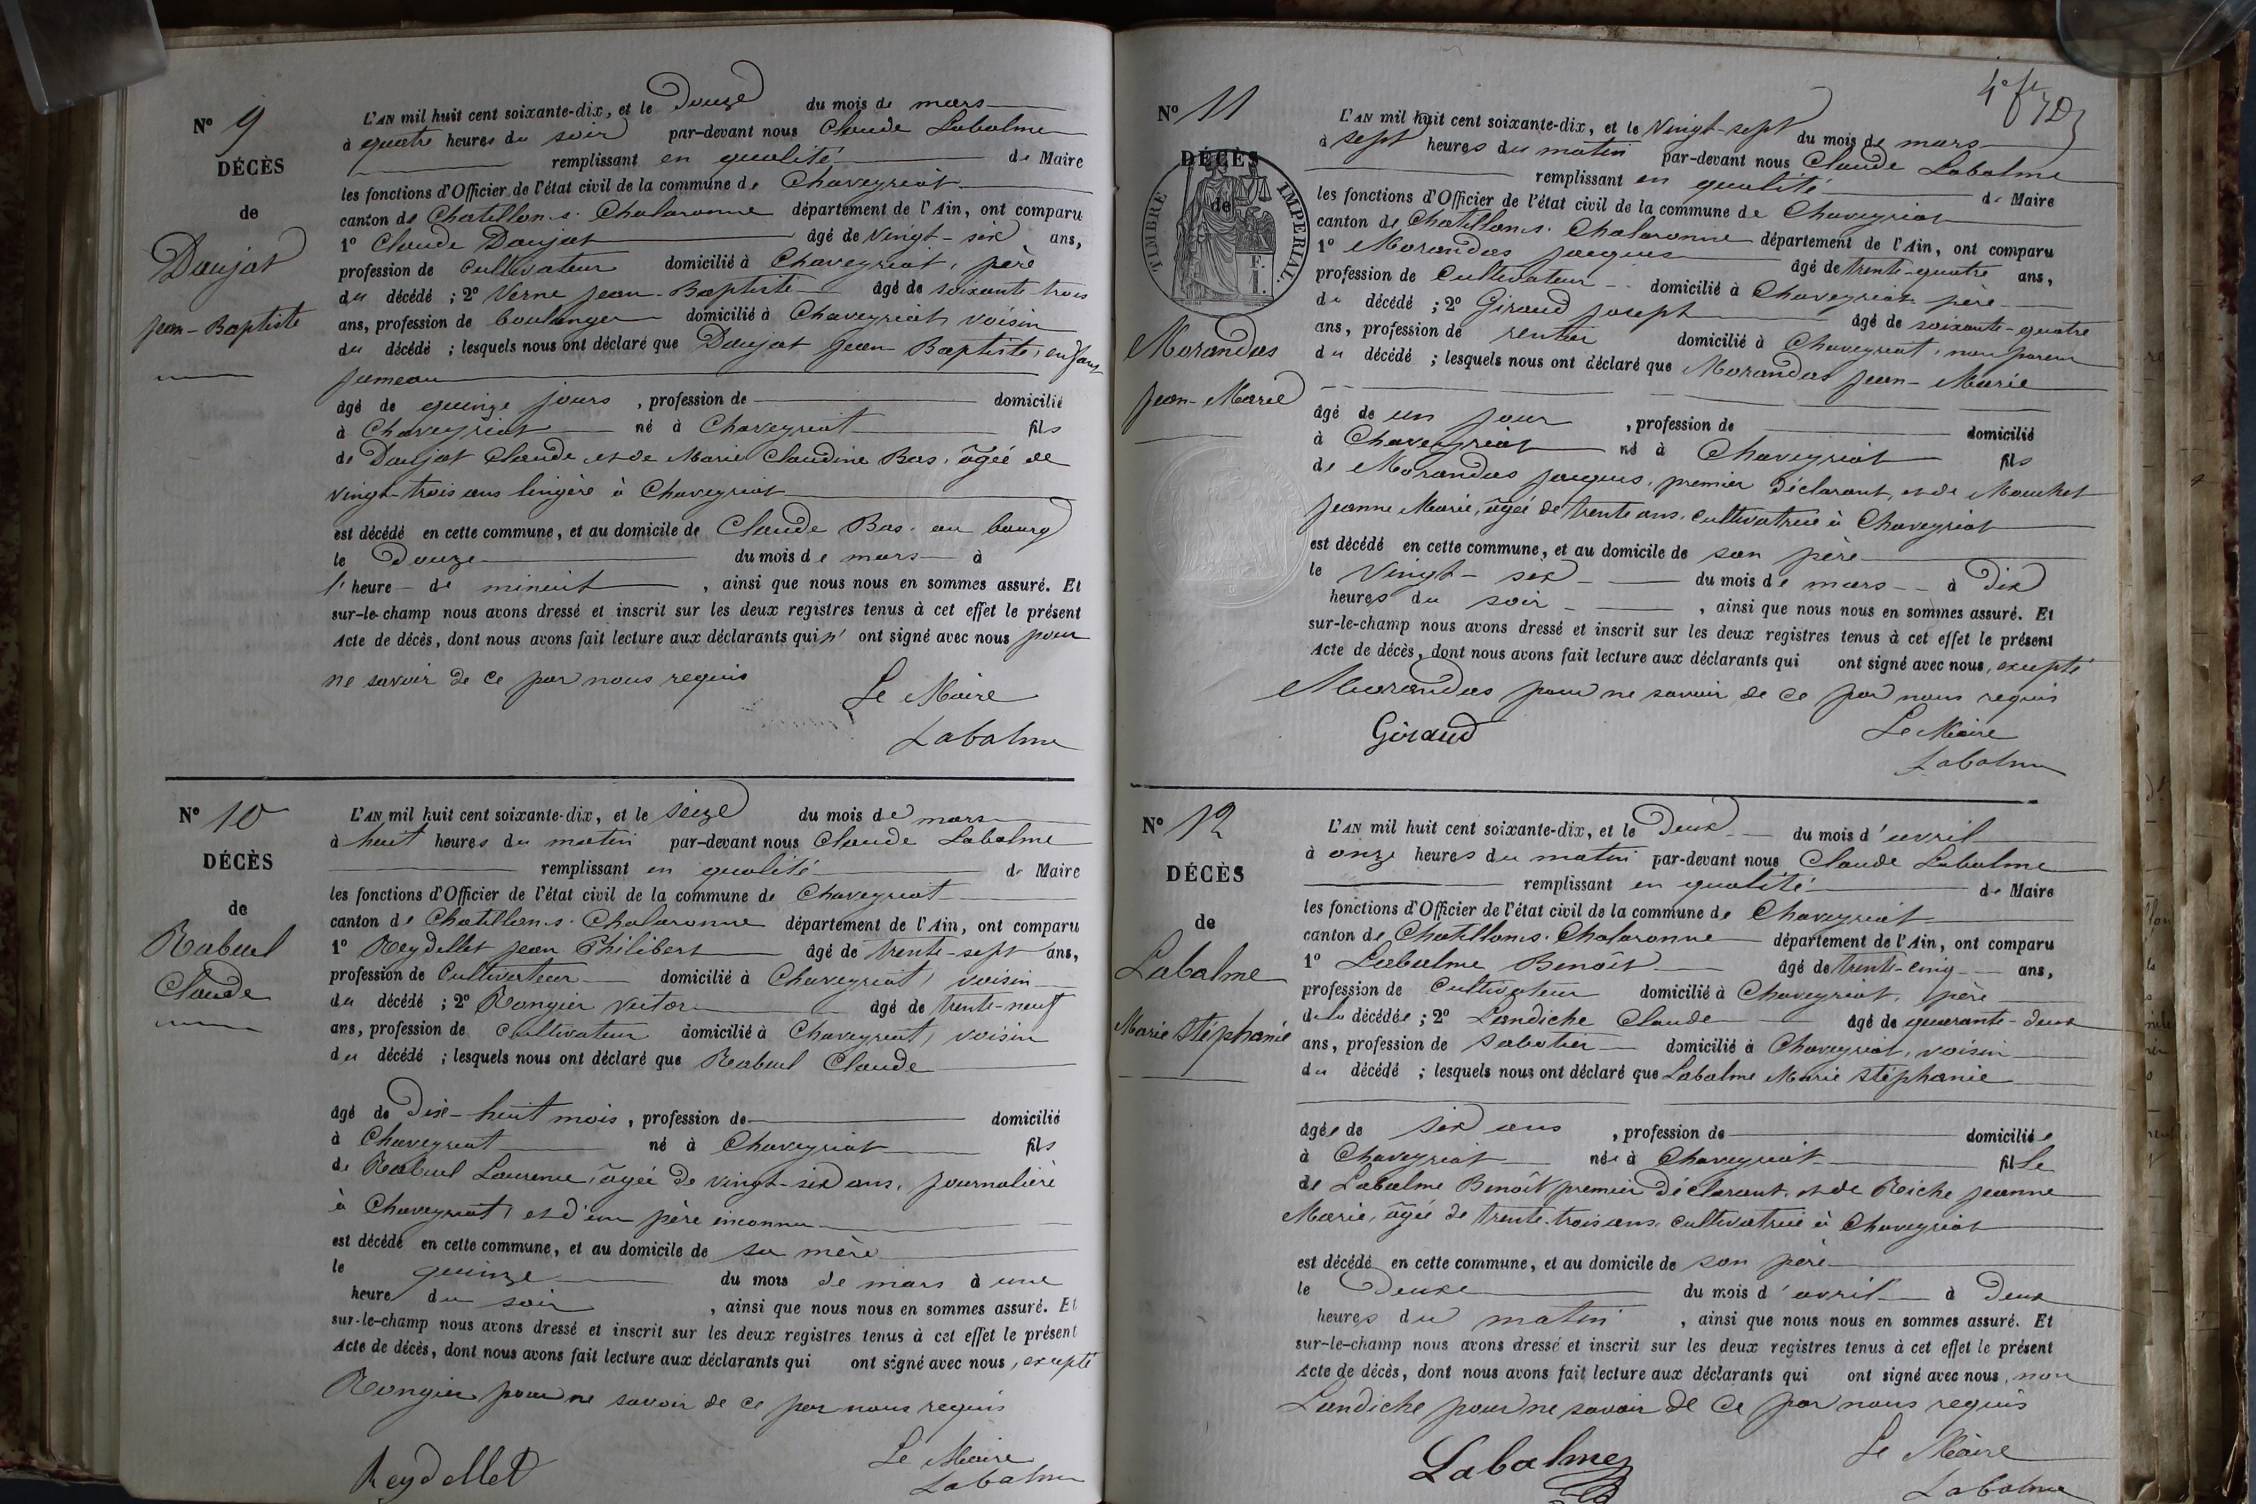 N° 9
DÉCÈS
de
Daujat
Jean-Baptiste
L'AN mil huit cent soixante-dix, et le Douze du mois de mars
à quatre heures du soir par-devant nous Claude Labalme
remplissant en qualité de Maire
les fonctions d'Officier de l'état civil de la commune de Chaveyriat
canton de Chatillon-s-Chalaronne département de l'Ain, ont comparu
1° Claude Daujat âgé de vingt-six ans,
profession de cultivateur domicilié à Chaveyriat, père
du décédé ; 2° Verne Jean-Baptiste âgé de soixante-trois
ans, profession de boulanger domicilié à Chaveyriat, voisin
du décédé ; lesquels nous ont déclaré que Daujat Jean Baptiste, enfant
jumeau
âgé de quinze jours , profession de domicilié
à Chaveyriat né à Chaveyriat fils
de Daujat Claude et de Marie Claudine Bas, âgée de
vingt-trois ans lingère à Chaveyriat
est décédé en cette commune, et au domicile de Claude Bas au bourg
le Douze du mois de mars à
l'heure de minuit , ainsi que nous nous en sommes assuré. Et
sur-le-champ nous avons dressé et inscrit sur les deux registres tenus à cet effet le présent
Acte de décès, dont nous avons fait lecture aux déclarants qui n' ont signé avec nous pour
ne savoir de ce par nous requis
Le Maire
Labalme
N° 10
DÉCÈS
de
Rabuel
Claude
L'AN mil huit cent soixante-dix, et le seize du mois de mars
à huit heures du matin par-devant nous Claude Labalme
remplissant en qualité de Maire
les fonctions d'Officier de l'état civil de la commune de Chaveyriat
canton de Chatillon-s-Chalaronne département de l'Ain, ont comparu
1° Reydellet Jean Philibert âgé de trente-sept ans,
profession de Cultivateur domicilié à Chaveyriat, voisin
du décédé ; 2° Rongier Victor âgé de trente-neuf
ans, profession de cultivateur domicilié à Chaveyriat, voisin
du décédé ; lesquels nous ont déclaré que Rabuel Claude
âgé de Dix-huit mois , profession de domicilié
à Chaveyriat né à Chaveyriat fils
de Rabuel Laurence, âgée de vingt-six ans, journalière
à Chaveyriat, et d'un père inconnu
est décédé en cette commune, et au domicile de sa mère
le quinze du mois de mars à une
heure du soir , ainsi que nous nous en sommes assuré. Et
sur-le-champ nous avons dressé et inscrit sur les deux registres tenus à cet effet le présent
Acte de décès, dont nous avons fait lecture aux déclarants qui ont signé avec nous, excepté
Rongier pour ne savoir de ce par nous requis
Le Maire
Reydellet
Labalme
4e ft
N° 11
DÉCÈS
de
TIMBRE IMPERIAL.
Morandas
Jean-Marie
L'AN mil huit cent soixante-dix, et le vingt-sept du mois de mars
à sept heures du matin par-devant nous Claude Labalme
remplissant en qualité de Maire
les fonctions d'Officier de l'état civil de la commune de Chaveyriat
canton de Chatillon-s-Chalaronne département de l'Ain, ont comparu
1° Morandas Jacques âgé de trente-quatre ans,
profession de Cultivateur domicilié à Chaveyriat père
du décédé ; 2° Giraud Joseph âgé de soixante-quatre
ans, profession de rentier domicilié à Chaveyriat, non parent
du décédé ; lesquels nous ont déclaré que Morandas Jean-Marie
âgé de un jour , profession de domicilié
à Chaveyriat né à Chaveyriat fils
de Morandas Jacques, premier déclarant, et de Mouchet
Jeanne Marie, âgée de trente ans, cultivatrice à Chaveyriat
est décédé en cette commune, et au domicile de son père
le Vingt-six du mois de mars à Dix
heures du soir , ainsi que nous nous en sommes assuré. Et
sur-le-champ nous avons dressé et inscrit sur les deux registres tenus à cet effet le présent
Acte de décès, dont nous avons fait lecture aux déclarants qui ont signé avec nous, excepté
Morandas pour ne savoir de ce par nous requis
Giraud
Le Maire
Labalme
N° 12
DÉCÈS
de
Labalme
Marie Stéphanie
L'AN mil huit cent soixante-dix, et le Deux du mois d'avril
à onze heures du matin par-devant nous Claude Labalme
remplissant en qualité de Maire
les fonctions d'Officier de l'état civil de la commune de Chaveyriat
canton de Chatillon-s-Chalaronne département de l'Ain, ont comparu
1° Labalme Benoît âgé de trente-cinq ans,
profession de Cultivateur domicilié à Chaveyriat, père
de la décédée ; 2° Landiche Claude âgé de quarante-deux
ans, profession de sabotier domicilié à Chaveyriat, voisin
du décédé ; lesquels nous ont déclaré que Labalme Marie Stéphanie
âgée de six ans , profession de domiciliée
à Chaveyriat née à Chaveyriat fille
de Labalme Benoît premier déclarant, et de Reiche Jeanne
Marie, âgée de trente-trois ans, cultivatrice à Chaveyriat
est décédé en cette commune, et au domicile de son père
le Deuxe du mois d'avril à Deux
heures du matin , ainsi que nous nous en sommes assuré. Et
sur-le-champ nous avons dressé et inscrit sur les deux registres tenus à cet effet le présent
Acte de décès, dont nous avons fait lecture aux déclarants qui ont signé avec nous, non
Landiche pour ne savoir de ce par nous requis
Le Maire
Labalme
Labalme